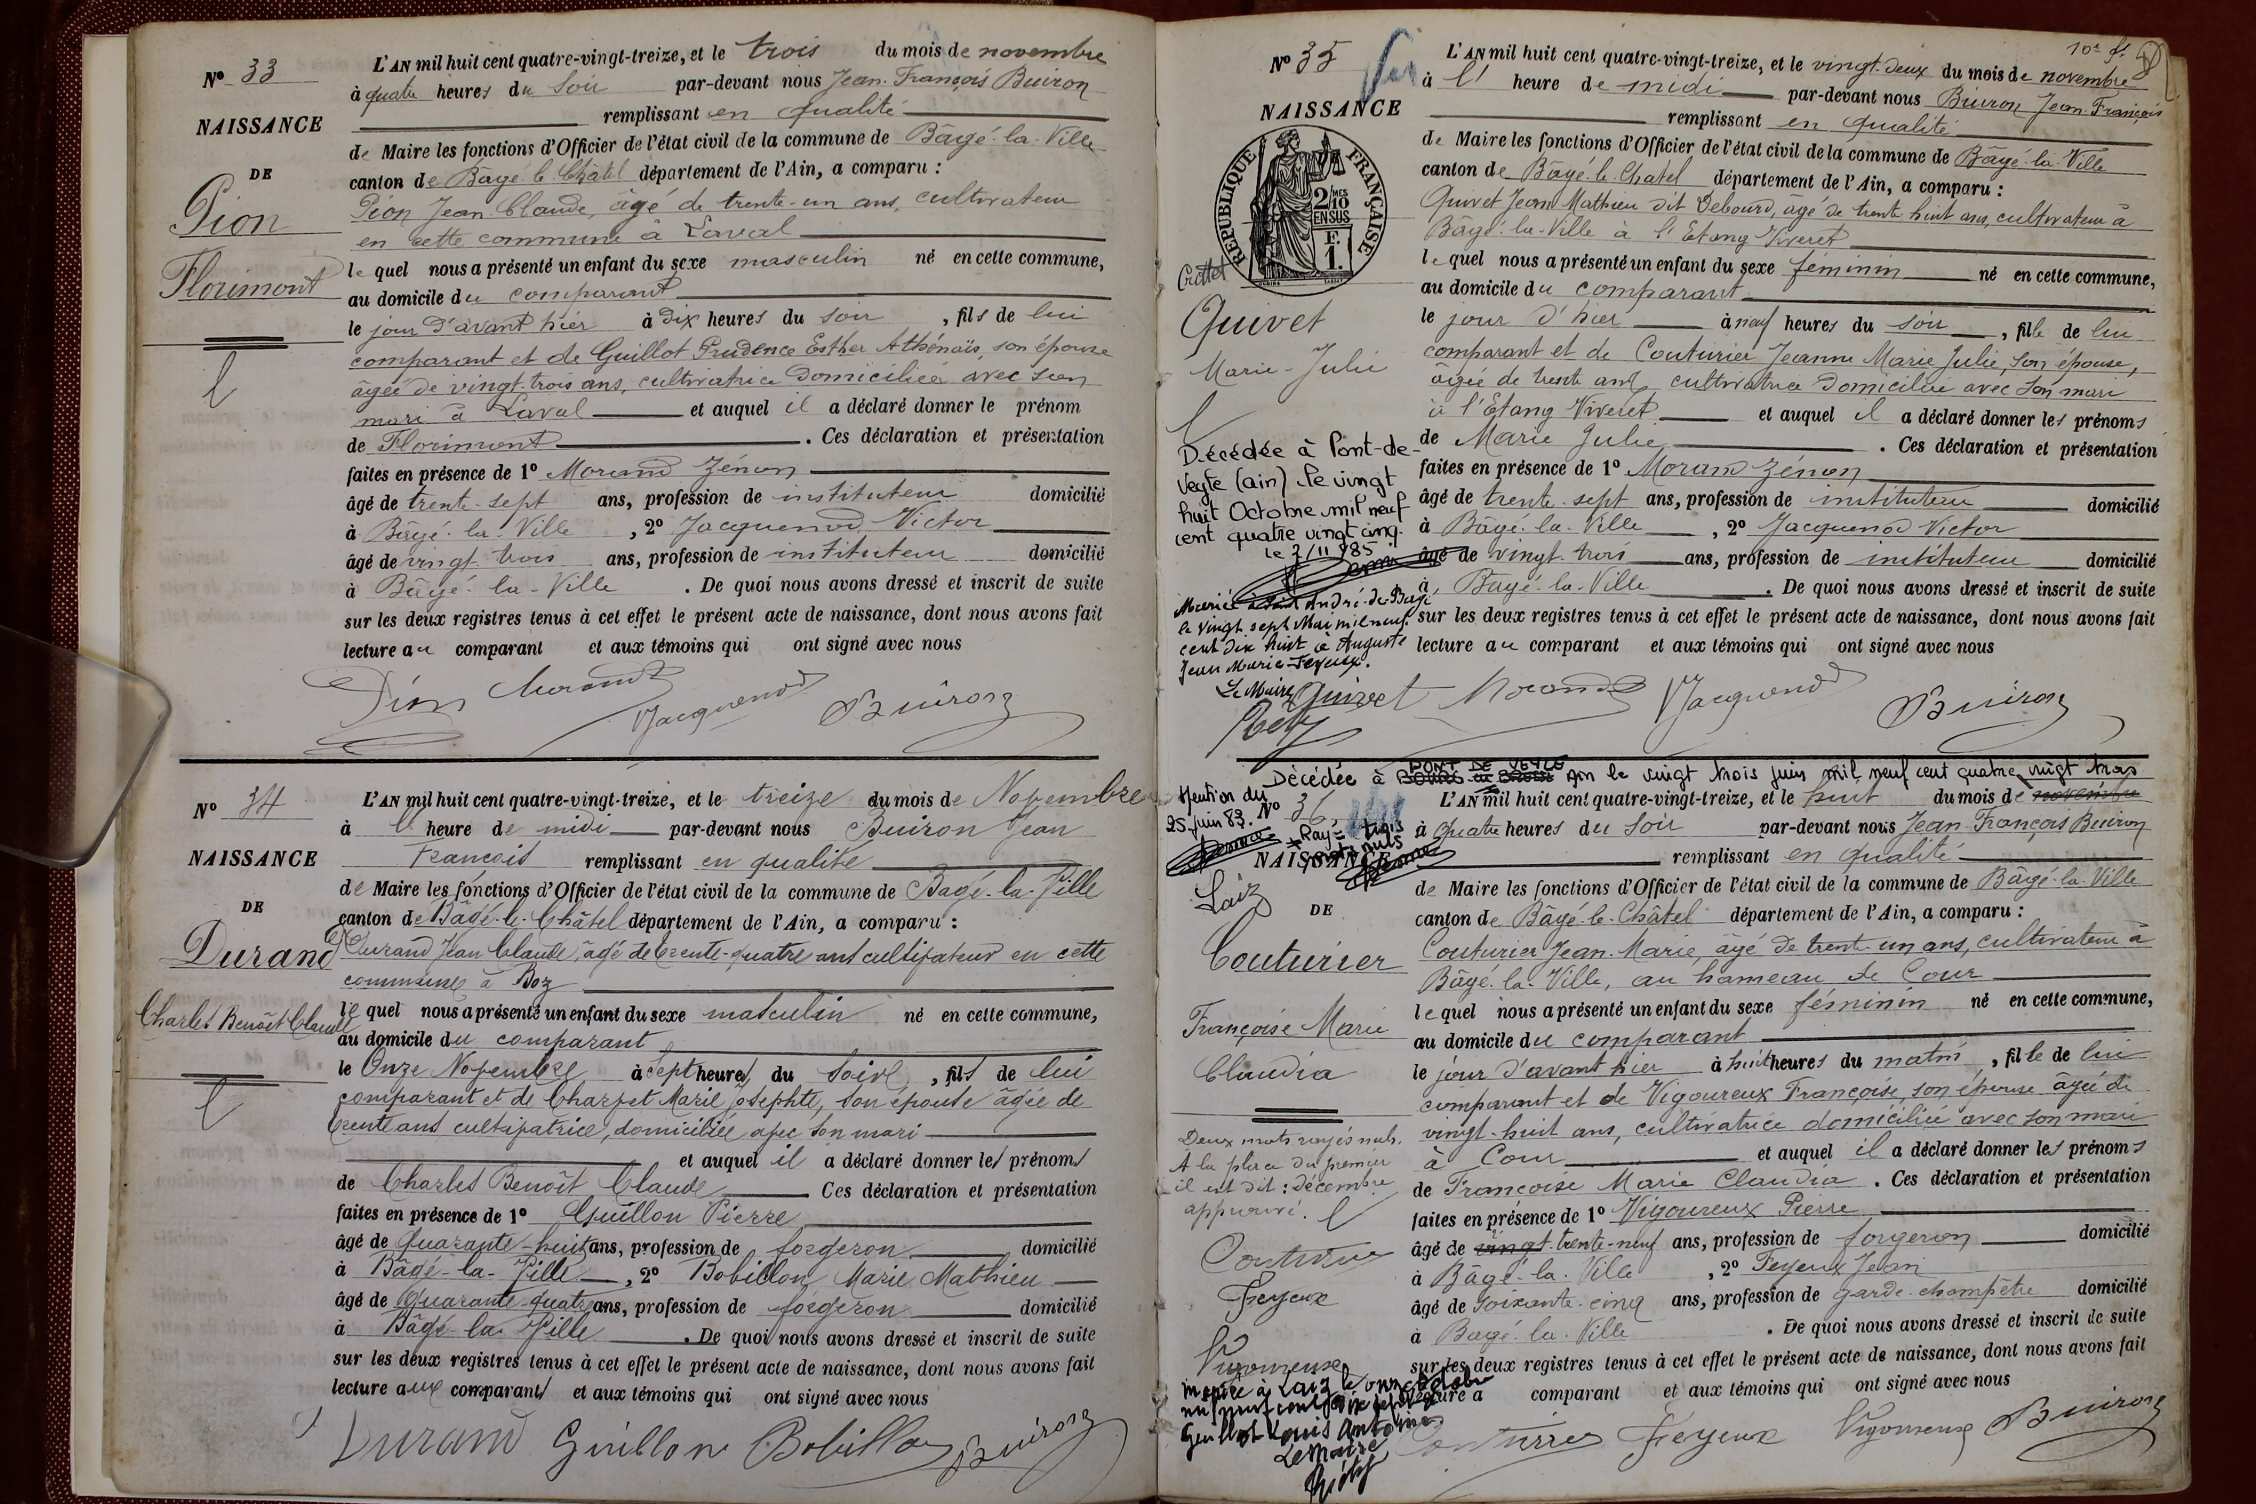 N° 33
NAISSANCE
DE
Pion
Florimont
L'AN mil huit cent quatre-vingt-treize, et le trois du mois de novembre
à quatre heures du soir par-devant nous Jean-François Buiron
remplissant en qualité
de Maire les fonctions d'Officier de l'état civil de la commune de Bâgé-la-Ville
canton de Bâgé-le-Châtel département de l'Ain, a comparu :
Pion Jean Claude, âgé de trente-un ans, cultivateur
en cette commune à Laval
lequel nous a présenté un enfant du sexe masculin né en cette commune,
au domicile du comparant
le jour d'avant hier à dix heures du soir, fils de lui
comparant et de Guillot Prudence Esther Athénaïs, son épouse
âgée de vingt-trois ans, cultivatrice domiciliée avec son
mari à Laval et auquel il a déclaré donner le prénom
de Florimont. Ces déclaration et présentation
faites en présence de 1° Morand Zénon
âgé de trente-sept ans, profession de instituteur domicilié
à Bâgé-la-Ville, 2° Jacquenod Victor
âgé de vingt-trois ans, profession de instituteur domicilié
à Bâgé-la-Ville. De quoi nous avons dressé et inscrit de suite
sur les deux registres tenus à cet effet le présent acte de naissance, dont nous avons fait
lecture au comparant et aux témoins qui ont signé avec nous
Pion Morand Jacquenod Buiron
N° 34
NAISSANCE
DE
Durand
Charles Benoît Claude
L'AN mil huit cent quatre-vingt-treize, et le treize du mois de Novembre
à l' heure de midi par-devant nous Buiron Jean
François remplissant en qualité
de Maire les fonctions d'Officier de l'état civil de la commune de Bagé-la-Ville
canton de Bâgé-le-Châtel département de l'Ain, a comparu :
Durand Jean Claude, âgé de trente-quatre ans cultivateur en cette
commune à Boz
lequel nous a présenté un enfant du sexe masculin né en cette commune,
au domicile du comparant
le Onze Novembre à sept heures du soir, fils de lui
comparant et de Charvet Marie Josephte, son épouse âgée de
trente ans cultivatrice, domiciliée avec son mari
et auquel il a déclaré donner les prénoms
de Charles Benoît Claude Ces déclaration et présentation
faites en présence de 1° Guillon Pierre
âgé de quarante-huit ans, profession de forgeron domicilié
à Bâgé-la-Ville, 2° Bobillon Marie Mathieu
âgé de quarante-quatre ans, profession de forgeron domicilié
à Bâgé-la-Ville. De quoi nous avons dressé et inscrit de suite
sur les deux registres tenus à cet effet le présent acte de naissance, dont nous avons fait
lecture aux comparants et aux témoins qui ont signé avec nous
Durand Guillon Bobillon Buiron
N° 35
NAISSANCE
REPUBLIQUE FRANÇAISE
2/10 MES
EN SUS
F.
1.
Crottet
Quivet
Marie-Julie
Décédée à Pont-de-
Veyle (ain) le vingt
huit Octobre mil neuf
cent quatre vingt cinq.
le 7/11 985
Mariée à Saint André-de-Bagé
le vingt sept Mai mil neuf
cent dix huit à Auguste
Jean Marie Feyeux.
Le Maire
10e ft
L'AN mil huit cent quatre-vingt-treize, et le vingt-deux du mois de novembre
à l' heure de midi par-devant nous Buiron Jean-François
remplissant en qualité
de Maire les fonctions d'Officier de l'état civil de la commune de Bâgé-la-Ville
canton de Bâgé-le-Chatel département de l'Ain, a comparu :
Quivet Jean Mathieu dit Debourd, âgé de trente huit ans, cultivateur à
Bâgé-la-Ville à l'Etang Viveret
lequel nous a présenté un enfant du sexe féminin né en cette commune,
au domicile du comparant
le jour d'hier à neuf heures du soir, fille de lui
comparant et de Couturier Jeanne Marie Julie, son épouse,
âgée de trente ans, cultivatrice domiciliée avec son mari
à l'Etang Viveret et auquel il a déclaré donner les prénoms
de Marie Julie. Ces déclaration et présentation
faites en présence de 1° Morand Zénon
âgé de trente-sept ans, profession de instituteur domicilié
à Bâgé-la-Ville, 2° Jacquenod Victor
âgé de vingt-trois ans, profession de instituteur domicilié
à Bagé-la-Ville. De quoi nous avons dressé et inscrit de suite
sur les deux registres tenus à cet effet le présent acte de naissance, dont nous avons fait
lecture au comparant et aux témoins qui ont signé avec nous
Quivet Morand Jacquenod Buiron
Décédée à PONT DE VEYLE Ain le vingt trois juin mil neuf cent quatre vingt trois
Mention du
25 juin 83.
N° 36.
Ray= trois
mots nuls
NAISSANCE
Laiz
DE
Couturier
Françoise Marie
Claudia
Deux mots rayés nuls.
A la place du premier
il est dit : décembre
approuvé.
Couturier
Feyeux
Vigoureux
mariée à Laiz le onze octobre
mil neuf cent dix sept à
Guillot Louis Antoine
Le Maire
L'AN mil huit cent quatre-vingt-treize, et le huit du mois de novembre
à quatre heures du soir par-devant nous Jean-François Buiron
remplissant en qualité
de Maire les fonctions d'Officier de l'état civil de la commune de Bâgé-la-Ville
canton de Bâgé-le-Châtel département de l'Ain, a comparu :
Couturier Jean-Marie, âgé de trent-un ans, cultivateur à
Bâgé-la-Ville, au hameau de Cour
lequel nous a présenté un enfant du sexe féminin né en cette commune,
au domicile du comparant
le jour d'avant hier à huit heures du matin, fille de lui
comparant et de Vigoureux Françoise, son épouse âgée de
vingt-huit ans, cultivatrice domiciliée avec son mari
à Cour et auquel il a déclaré donner les prénoms
de Françoise Marie Claudia. Ces déclaration et présentation
faites en présence de 1° Vigoureux Pierre
âgé de vingt-trente-neuf ans, profession de forgeron domicilié
à Bâgé-la-Ville, 2° Feyeux Jean
âgé de soixante-cinq ans, profession de garde-champêtre domicilié
à Bagé-la-Ville. De quoi nous avons dressé et inscrit de suite
sur les deux registres tenus à cet effet le présent acte de naissance, dont nous avons fait
lecture a comparant et aux témoins qui ont signé avec nous
Couturier Feyeux Vigoureux Buiron